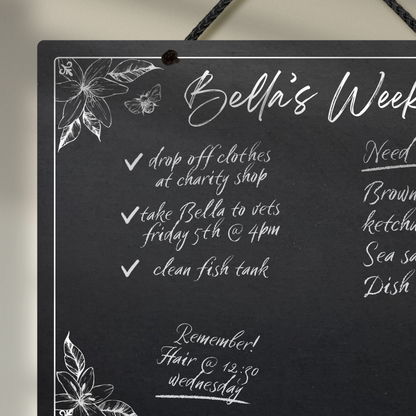 Bella's Week
drop off clothes
at charity shop
take Bella to vets
friday 5th @ 4pm
clean fish tank
Remember!
Hair @ 12:30
wednesday
Need
Brown
ketchu
Sea sa
Dish